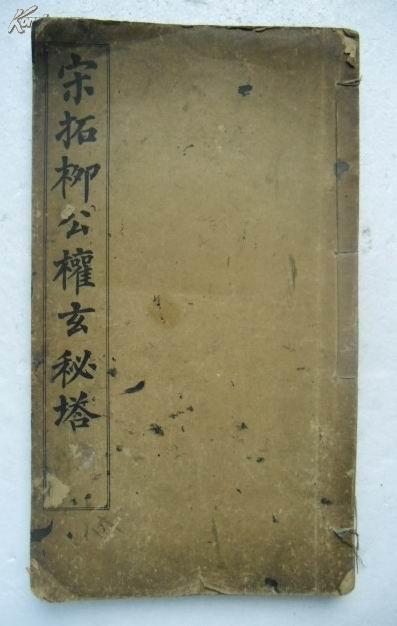 宋拓柳公權玄秘塔